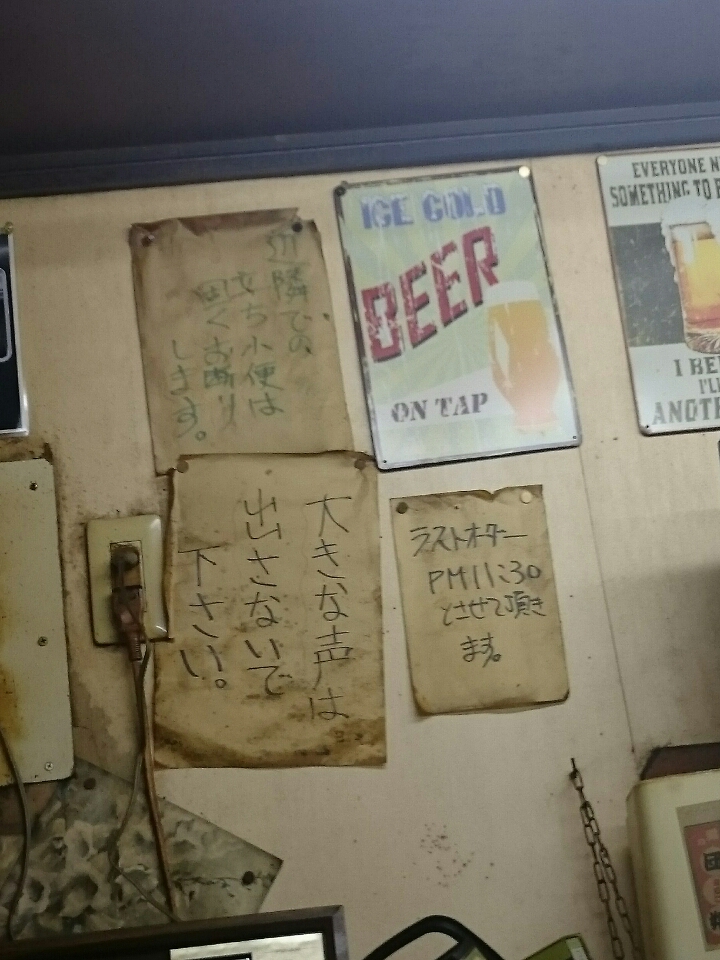 近隣での
立ち小便は
固くお断り
します。
大きな声は
出さないで
下さい。
ICE COLD
BEER
ON TAP
ラストオーダー
PM11:30
とさせて頂き
ます。
EVERYONE
SOMETHING TO
I
I'LL